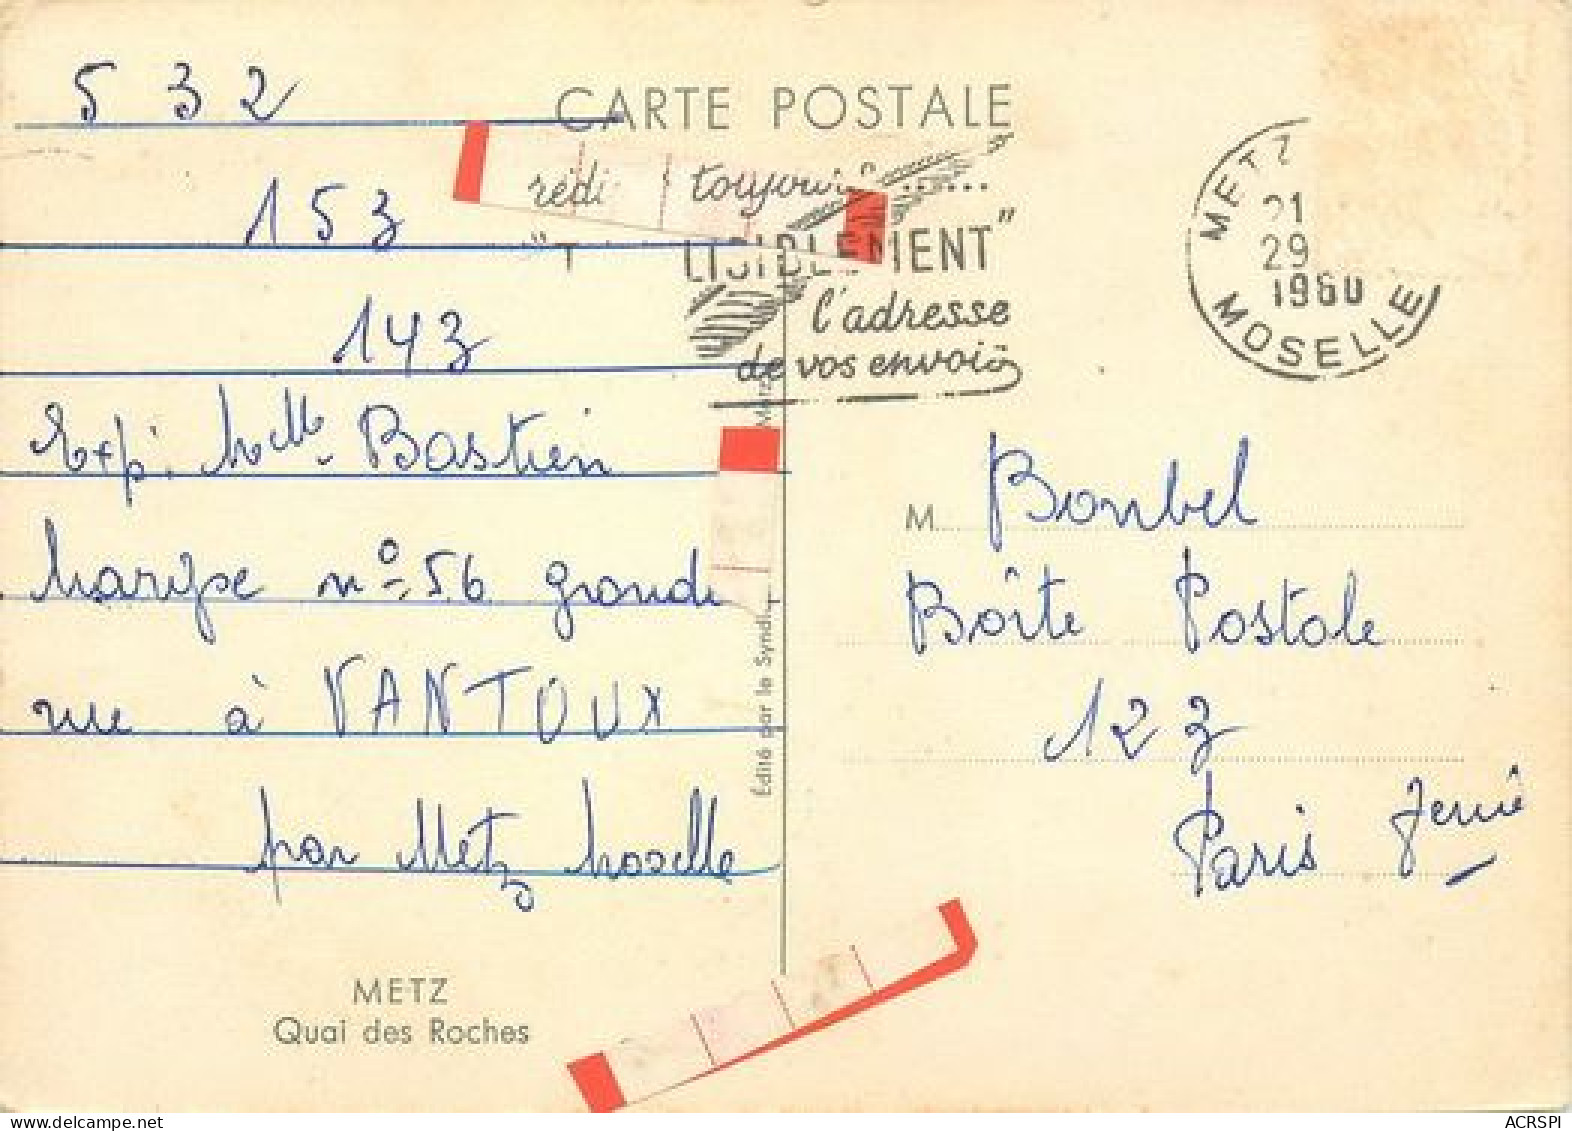 5 3 2
CARTE POSTALE
153
143
Exp: Melle Bastien
n° 56 grande
rue à VANTOUX
par Metz Moselle
METZ
Quai des Roches
rédi toujours ......
"T LISIBLEMENT"
l'adresse
de vos envois
METZ
21
29
1960
MOSELLE
Édité par le Syndi
M Bonbel
Boîte Postale
123
Paris
ACRSPI